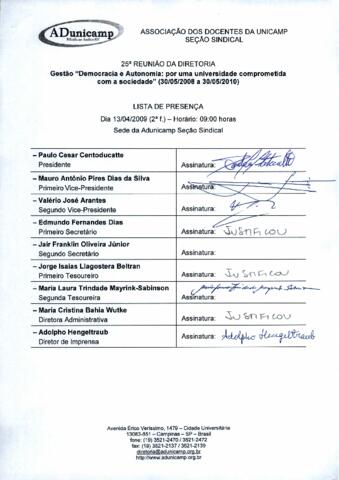 ADunicamp
ASSOCIAÇÃO DOS DOCENTES DA UNICAMP
SEÇÃO SINDICAL
25ª REUNIÃO DA DIRETORIA
Gestão "Democracia e Autonomia: por uma universidade comprometida
com a sociedade" (30/05/2008 a 30/05/2010)
LISTA DE PRESENÇA
Dia 13/04/2009 (2ª f.) – Horário: 09:00 horas
Sede da Adunicamp Seção Sindical
– Paulo Cesar Centoducatte
Presidente Assinatura:
– Mauro Antônio Pires Dias da Silva
Primeiro Vice-Presidente Assinatura:
– Valério José Arantes
Segundo Vice-Presidente Assinatura:
– Edmundo Fernandes Dias
Primeiro Secretário Assinatura: JUSTIFICOU
– Jair Franklin Oliveira Júnior
Segundo Secretário Assinatura:
– Jorge Isaias Llagostera Beltran
Primeiro Tesoureiro Assinatura: JUSTIFICOU
– Maria Laura Trindade Mayrink-Sabinson
Segunda Tesoureira Assinatura:
– Maria Cristina Bahia Wutke
Diretora Administrativa Assinatura: JUSTIFICOU
– Adolpho Hengeltraub
Diretor de Imprensa Assinatura: Adolpho Hengeltraub
Avenida Érico Veríssimo, 1479 – Cidade Universitária
13083-851 – Campinas – SP – Brasil
fone: (19) 3521-2470 / 3521-2472
fax: (19) 3521-2137 / 3521-2139
diretoria@adunicamp.org.br
http://www.adunicamp.org.br